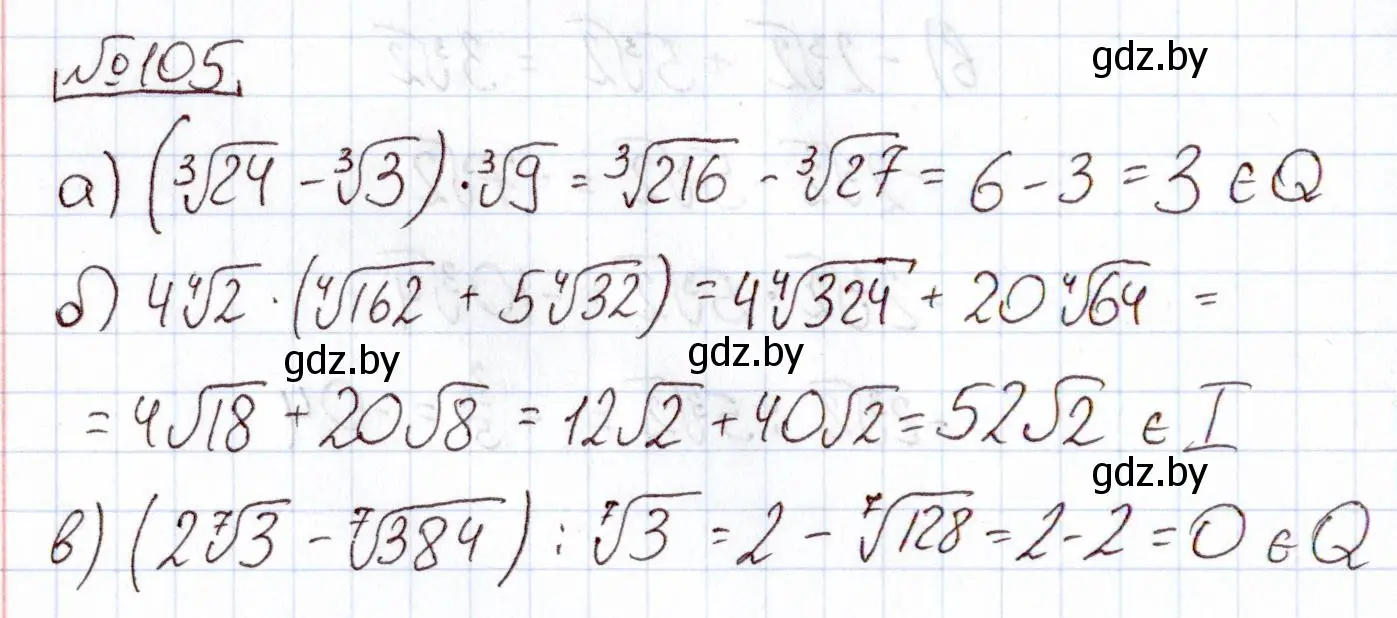 №105 gdz.by
а) (∛24 - ∛3) · ∛9 = ∛216 - ∛27 = 6 - 3 = 3 ∈ Q
б) 4∜2 · (∜162 + 5∜32) = 4∜324 + 20∜64 =
gdz.by gdz.by
= 4√18 + 20√8 = 12√2 + 40√2 = 52√2 ∈ I
gdz.by
в) (2⁷√3 - ⁷√384) : ⁷√3 = 2 - ⁷√128 = 2 - 2 = 0 ∈ Q